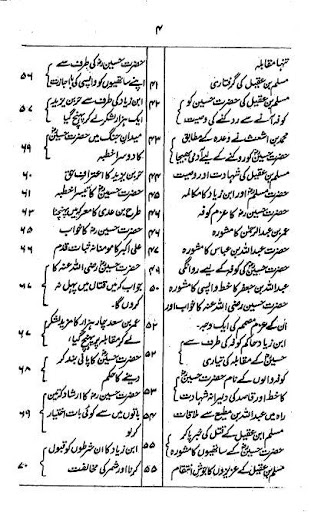 ۴
تنہا مقابلہ
مسلم بن عقیل کی گرفتاری ۴۱
مسلم بن عقیل کی حضرت حسینؓ کو ۴۲
کوفہ آنے سے روکنے کی وصیت
محمد بن اشعث نے وعدہ کے مطابق ۴۳
حضرت حسینؓ کو روکنے کے لیے آدمی بھیجا
مسلم بن عقیل کی شہادت اور وصیت ۴۴
حضرت مسلمؓ اور ابن زیاد کا مکالمہ ۴۵
حضرت حسینؓ کا عزم کوفہ
عمر بن عبدالرحمٰن کا مشورہ
حضرت عبداللہ بن عباسؓ کا مشورہ ۴۷
حضرت حسینؓ کی کوفہ کے لیے روانگی ۴۹
عبداللہ بن جعفر کا خط واپسی کا مشورہ ۵۰
حضرت حسین رضی اللہ عنہ کا خواب اور
اُن کے عزم مصمم کی ایک وجہ
ابن زیاد حاکم کوفہ کی طرف سے ۵۲
حسینؓ کے مقابلہ کی تیاری
کوفہ والوں کے نام حضرت حسینؓ
کا خط اور قاصد کی دلیرانہ شہادت
راہ میں عبداللہ بن مطیع سے ملاقات ۵۴
مسلم ابن عقیل کے قتل کی خبر پا کر
حضرت حسینؓ کے ساتھیوں کا مشورہ ۵۵
مسلم بن عقیل کے عزیزوں کا جوش انتقام ۵۵
حضرت حسینؓ کی طرف سے ۵۶
اپنے ساتھیوں کو واپسی کی اجازت
ابن زیاد کی طرف سے حر بن یزید ۵۷
ایک ہزار لشکر لے کر پہنچ گیا
میدان جنگ میں حضرت حسینؓ
کا دوسرا خطبہ
حر بن یزید کا اعترافِ حق ۶۰
حضرت حسینؓ کا تیسرا خطبہ ۶۱
طرح بن عدی کا معرکہ میں پہنچنا
حضرت حسینؓ کا خواب ۶۵
علی اکبر کا مومنانہ ثبات قدم ۶۶
حضرت حسین رضی اللہ عنہ کا
جواب کہ میں قتال میں پہل نہ
کروں گا۔
عمر بن سعد چار ہزار کا مزید لشکر ۶۷
لے کر مقابلہ پر پہنچ گیا
حضرت حسینؓ کا پانی بند کر ۶۸
دینے کا حکم
حضرت حسینؓ کا ارشاد کہ تین ۶۹
باتوں میں سے کوئی بات اختیار
کر لو
ابن زیاد کا ان شرطوں کو قبول ۷۰
کرنا اور شمر کی مخالفت